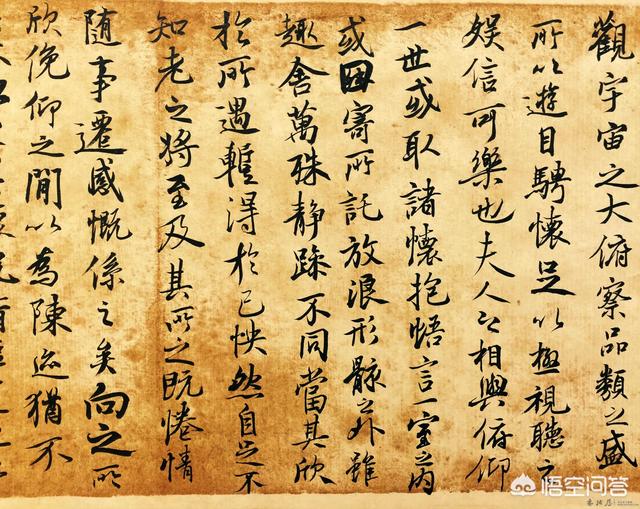 觀宇宙之大俯察品類之盛
所以遊目騁懷足以極視聽之
娛信可樂也夫人之相與俯仰
一世或取諸懷抱悟言一室之內
或因寄所託放浪形骸之外雖
趣舍萬殊靜躁不同當其欣
於所遇輒得於己怏然自足不
知老之將至及其所之既惓情
隨事遷感慨係之矣向之所
欣俛仰之閒以為陳迹猶不
悟空问答